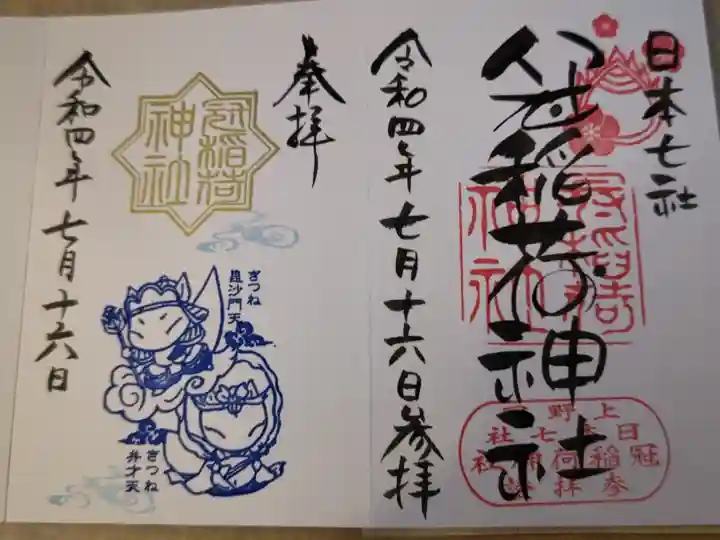 日本七社
冠稲荷神社
冠稲荷
神社
上野
日本七社
冠稲荷神社
参拝
令和四年七月十六日参拝
奉拝
冠稲荷
神社
きつね
毘沙門天
きつね
弁才天
令和四年七月十六日